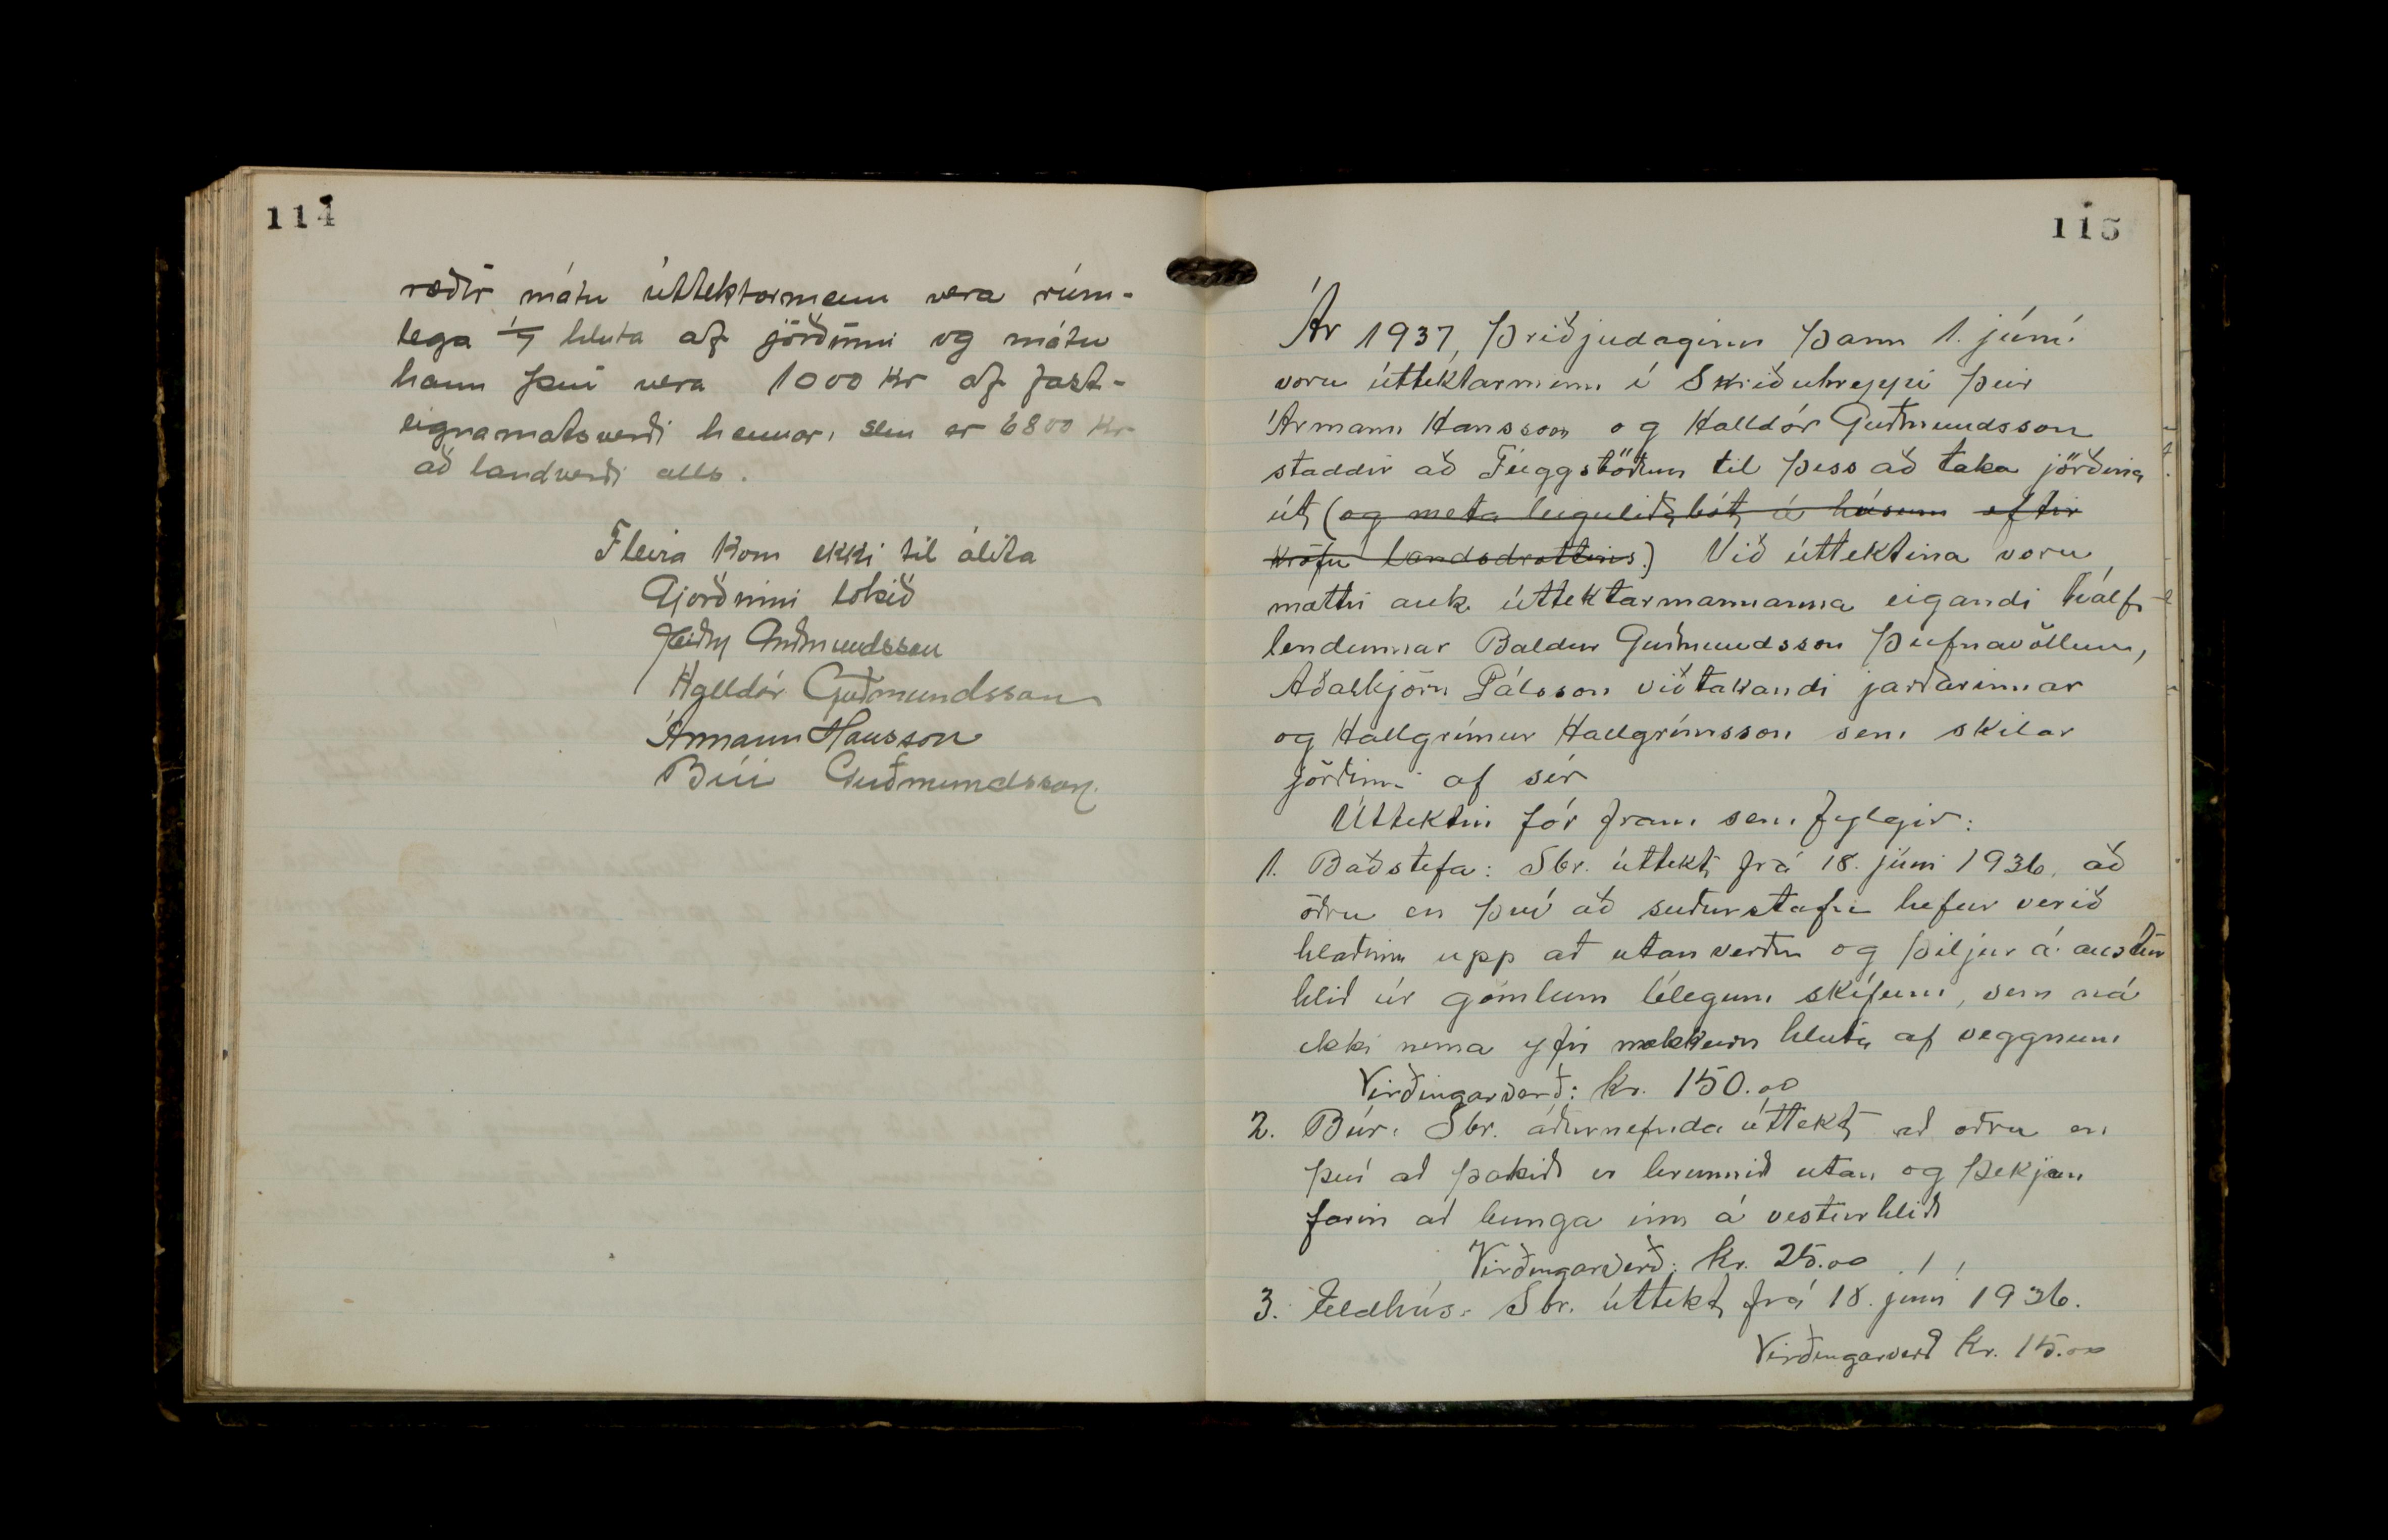 114
ræðir mátu úttektarmenn vera rúm-
lega 1/7 hluta af jörðinni og mátu
hann því vera 1000 kr af fast-
eignamatsverði hennar, sem er 6800 kr
að landverði alls.
Fleira kom ekki til álita
Gjörðinni lokið
Guðmundsson
Halldór Guðmundsson
Ármann Hansson
Búi Guðmundsson
115
Ár 1937, þriðjudaginn þann 1. júní
voru úttektarmenn í Skriðuhreppi þeir
Ármann Hansson og Halldór Guðmundsson
staddir að Flöggstöðum til þess að taka jörðina
út, (og meta leiguliðabót, á húsum eftir
kröfu landsdrottins.) Við úttektina voru
mættir auk úttektarmannanna eigandi hálf-
lendunnar Baldur Guðmundsson Þúfnavöllum,
Aðalbjörn Pálsson viðtakandi jarðarinnar
og Hallgrímur Hallgrímsson sem skilar
jörðinni af sér
Úttektin fór fram sem fylgir:
1. Baðstofa: Sbr. úttekt frá 18. júní 1936, að
öðru en því að suðurstafn hefur verið
hlaðinn upp að utanverðu og þiljur á austur
hlið úr gömlum lélegum skífum, sem ná
ekki nema yfir nokkurn hluta af veggnum
Virðingarverð: kr. 150.00
2. Búr: Sbr. áðurnefnda úttekt að öðru en
því að þakið er brunnið utan og þekjan
farin að bunga inn á vesturhlið
Virðingarverð: kr. 25.00
3. Eldhús: Sbr. úttekt frá 18. júní 1936.
Virðingarverð kr. 15.00